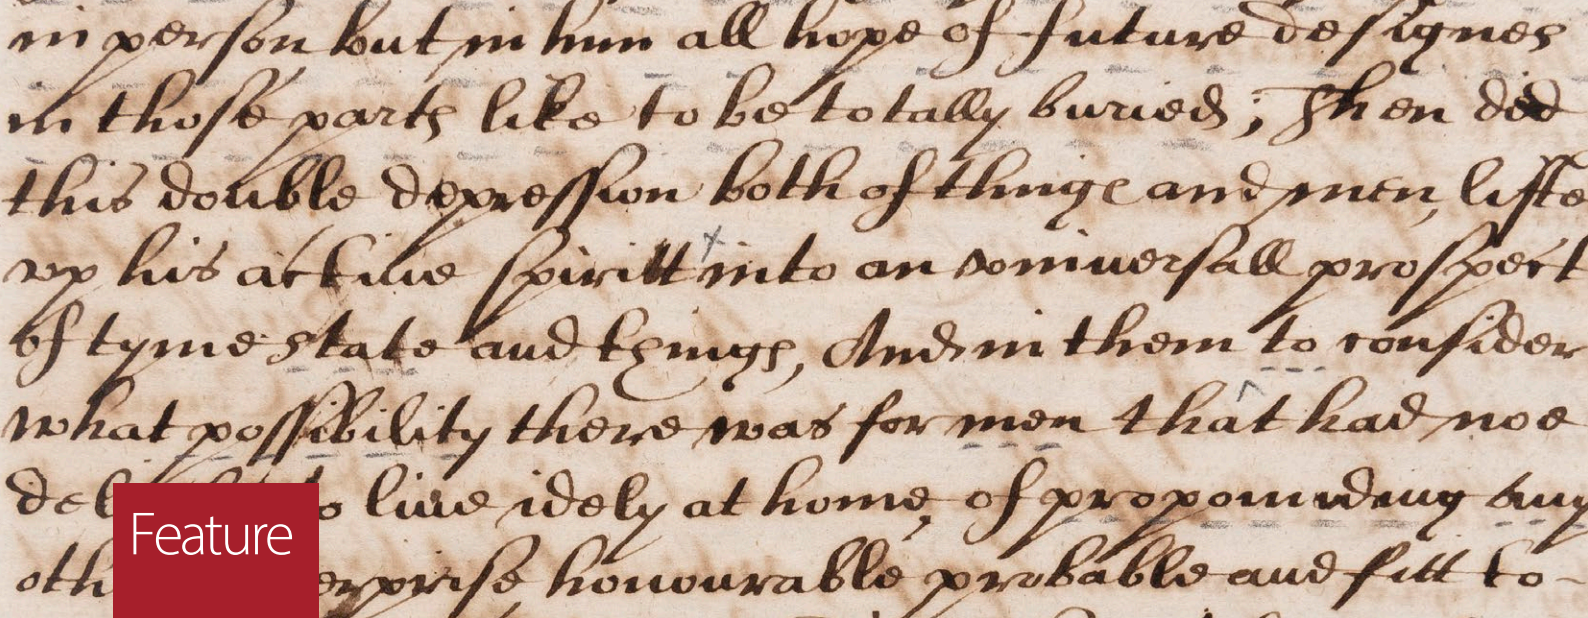 in person, but in him all hope of future designes
in those parts like to be totally buried; Then did
this double depression both of things and men, lifte
vp his actiue spiritt into an vniuersall prospect
of tyme state and things, And in them to consider
what possibility there was for men that had noe
to liue idely at home, of propounding any
honourable probable and fitt to-
Feature